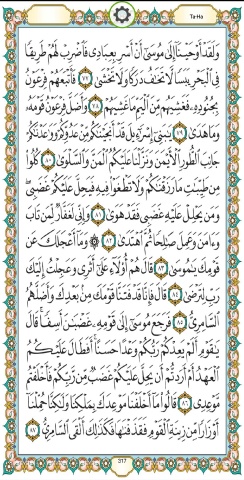 Ta-Ha
وَلَقَدْ أَوْحَيْنَا إِلَىٰ مُوسَىٰ أَنْ أَسْرِ بِعِبَادِي فَاضْرِبْ لَهُمْ طَرِيقًا
فِي الْبَحْرِ يَبَسًا لَا تَخَافُ دَرَكًا وَلَا تَخْشَىٰ ٧٧ فَأَتْبَعَهُمْ فِرْعَوْنُ
بِجُنُودِهِ فَغَشِيَهُمْ مِنَ الْيَمِّ مَا غَشِيَهُمْ ٧٨ وَأَضَلَّ فِرْعَوْنُ قَوْمَهُ
وَمَا هَدَىٰ ٧٩ يَا بَنِي إِسْرَائِيلَ قَدْ أَنْجَيْنَاكُمْ مِنْ عَدُوِّكُمْ وَوَاعَدْنَاكُمْ
جَانِبَ الطُّورِ الْأَيْمَنَ وَنَزَّلْنَا عَلَيْكُمُ الْمَنَّ وَالسَّلْوَىٰ ٨٠ كُلُوا
مِنْ طَيِّبَاتِ مَا رَزَقْنَاكُمْ وَلَا تَطْغَوْا فِيهِ فَيَحِلَّ عَلَيْكُمْ غَضَبِي
وَمَنْ يَحْلِلْ عَلَيْهِ غَضَبِي فَقَدْ هَوَىٰ ٨١ وَإِنِّي لَغَفَّارٌ لِمَنْ تَابَ
وَآمَنَ وَعَمِلَ صَالِحًا ثُمَّ اهْتَدَىٰ ٨٢ وَمَا أَعْجَلَكَ عَنْ
قَوْمِكَ يَا مُوسَىٰ ٨٣ قَالَ هُمْ أُولَاءِ عَلَىٰ أَثَرِي وَعَجِلْتُ إِلَيْكَ
رَبِّ لِتَرْضَىٰ ٨٤ قَالَ فَإِنَّا قَدْ فَتَنَّا قَوْمَكَ مِنْ بَعْدِكَ وَأَضَلَّهُمُ
السَّامِرِيُّ ٨٥ فَرَجَعَ مُوسَىٰ إِلَىٰ قَوْمِهِ غَضْبَانَ أَسِفًا قَالَ
يَا قَوْمِ أَلَمْ يَعِدْكُمْ رَبُّكُمْ وَعْدًا حَسَنًا أَفَطَالَ عَلَيْكُمُ
الْعَهْدُ أَمْ أَرَدْتُمْ أَنْ يَحِلَّ عَلَيْكُمْ غَضَبٌ مِنْ رَبِّكُمْ فَأَخْلَفْتُمْ
مَوْعِدِي ٨٦ قَالُوا مَا أَخْلَفْنَا مَوْعِدَكَ بِمَلْكِنَا وَلَٰكِنَّا حُمِّلْنَا
أَوْزَارًا مِنْ زِينَةِ الْقَوْمِ فَقَذَفْنَاهَا فَكَذَٰلِكَ أَلْقَى السَّامِرِيُّ ٨٧
317